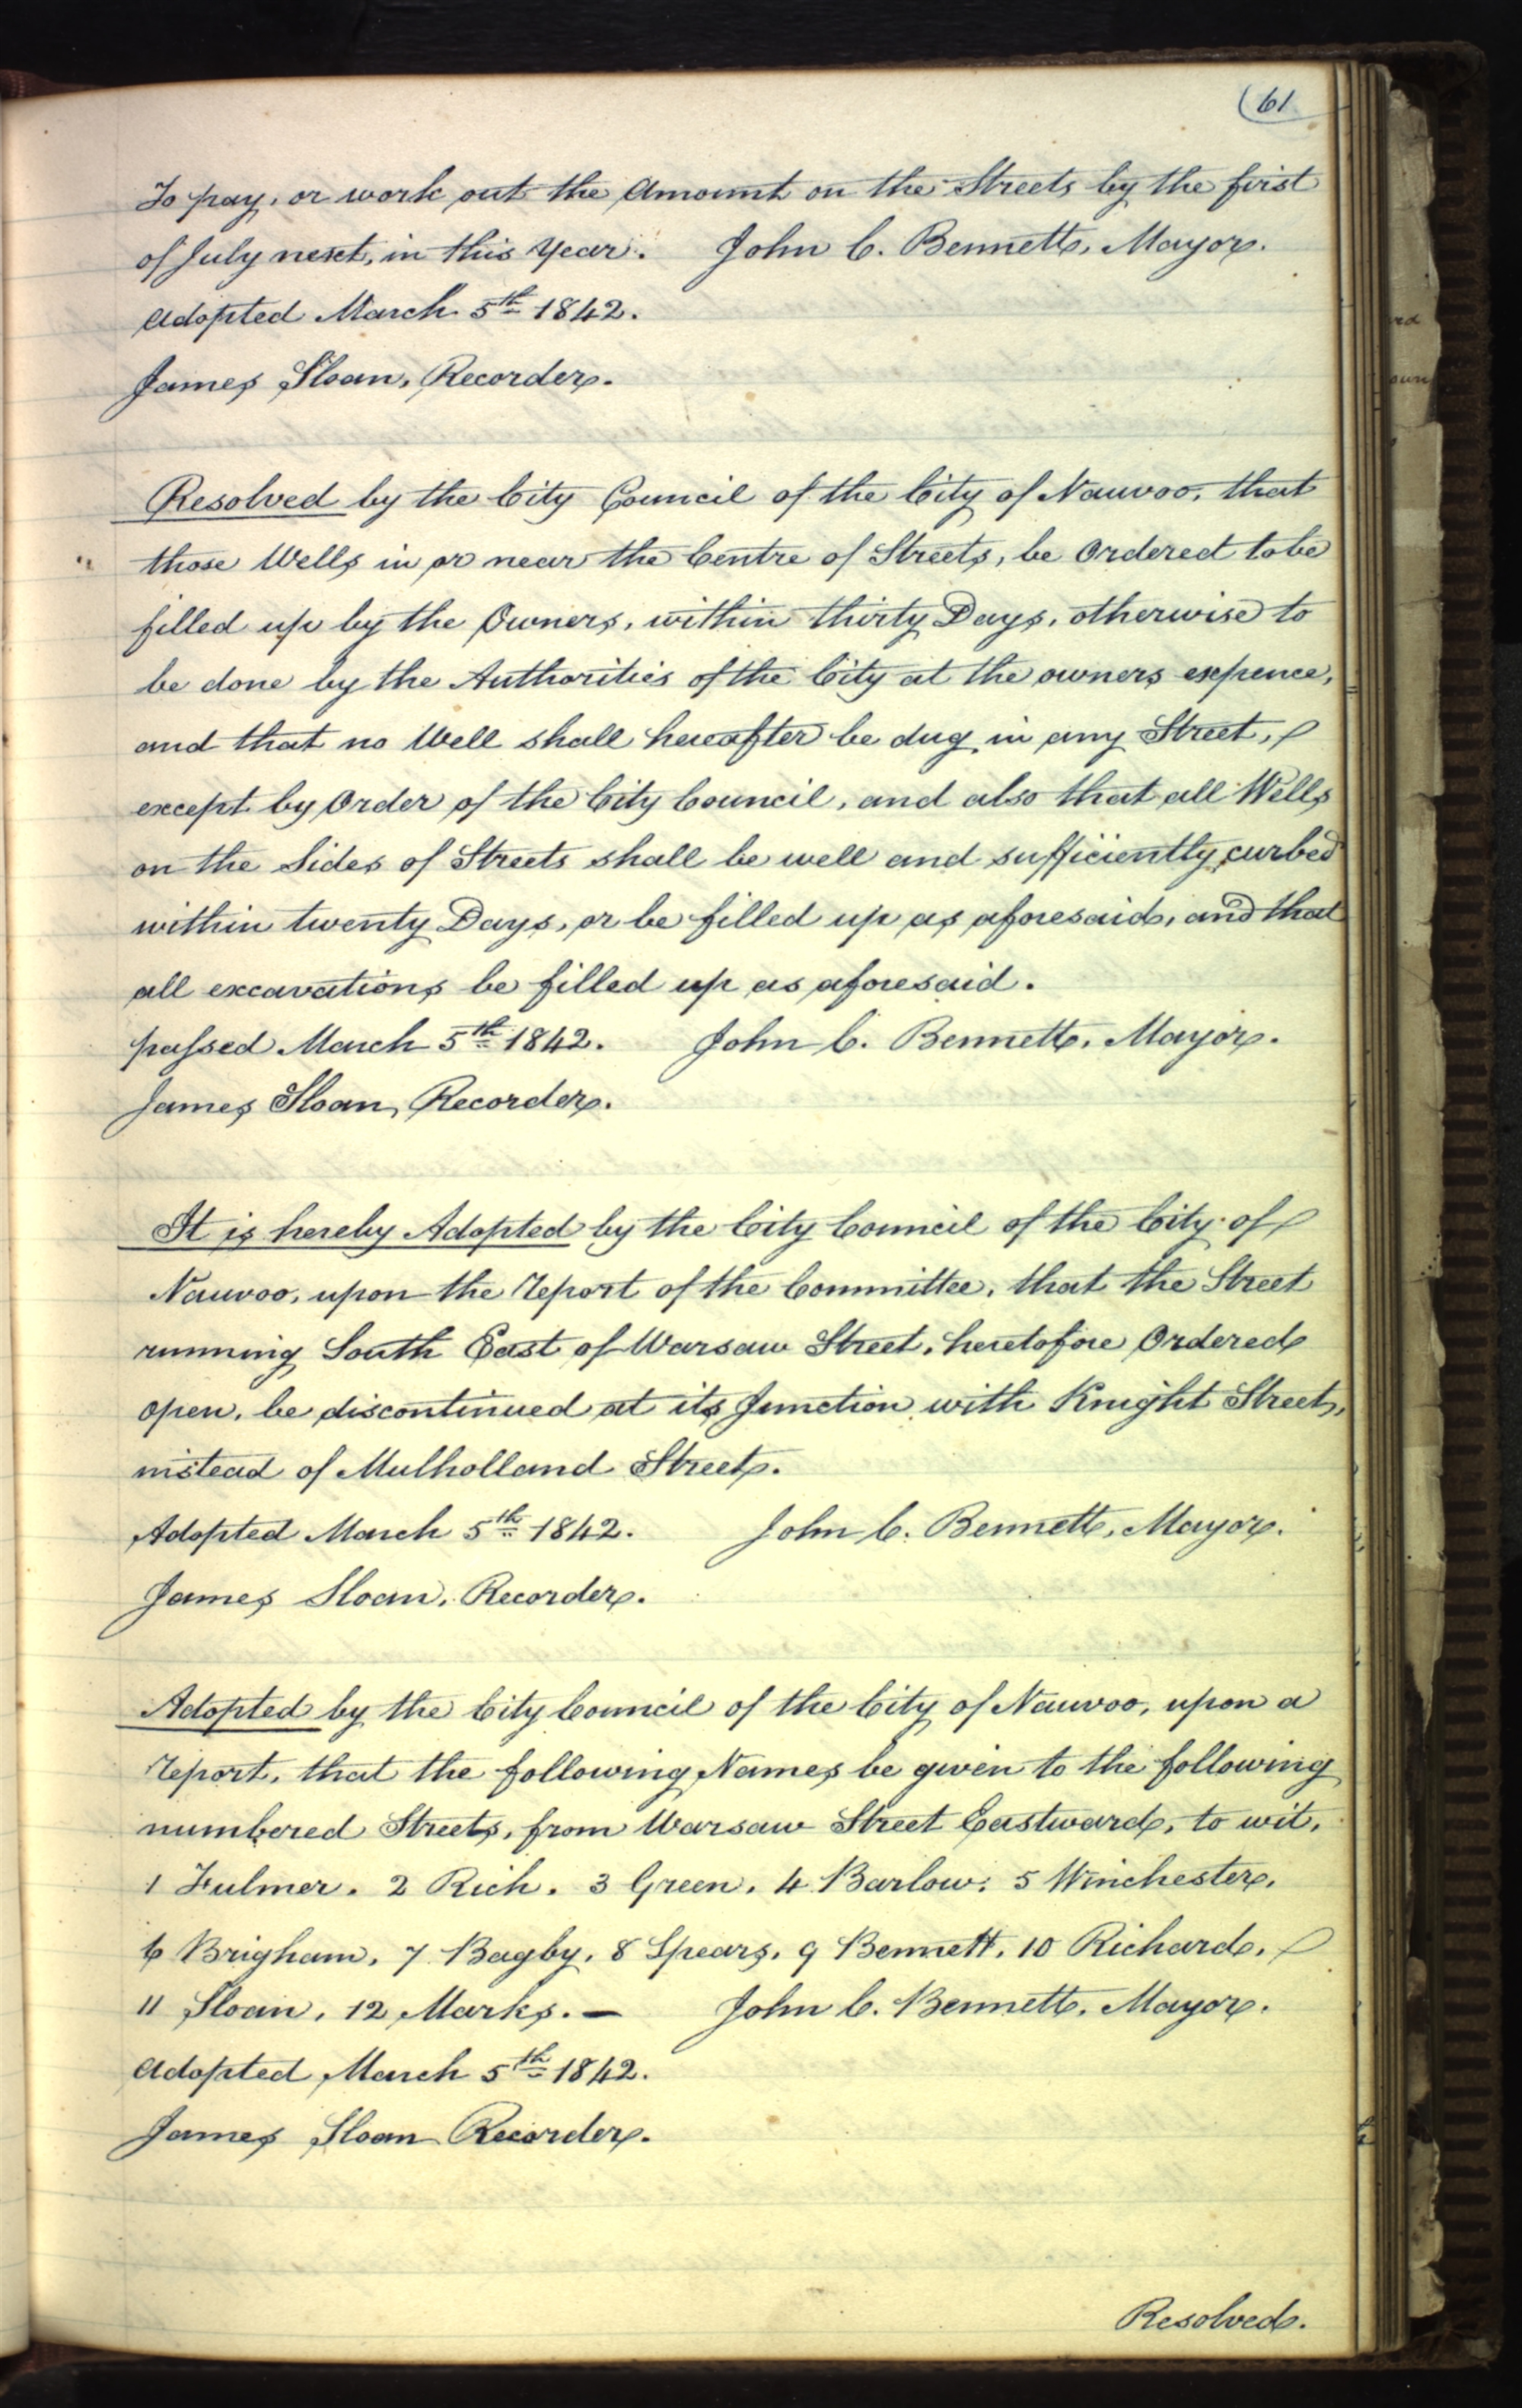 61
To pay, or work out the Amount on the Streets by the first
of July next, in this Year. John C. Bennett, Mayor.
Adopted March 5th 1842.
James Sloan, Recorder.
Resolved by the City Council of the City of Nauvoo, that
those Wells in or near the Centre of Streets, be Ordered to be
filled up by the Owners, within thirty Days, otherwise to
be done by the Authorities of the City at the owners expence,
and that no Well shall hereafter be dug in any Street,
except by Order of the City Council, and also that all Wells
on the Sides of Streets shall be well and sufficiently curbed
within twenty Days, or be filled up as aforesaid, and that
all excavations be filled up as aforesaid.
passed March 5th 1842. John C. Bennett, Mayor.
James Sloan, Recorder.
It is hereby Adopted by the City Council of the City of
Nauvoo, upon the report of the Committee, that the Street
running South East of Warsaw Street, heretofore Ordered
open, be discontinued at its Junction with Knight Street,
instead of Mulholland Street.
Adopted March 5th 1842. John C. Bennett, Mayor.
James Sloan, Recorder.
Adopted by the City Council of the City of Nauvoo, upon a
report, that the following Names be given to the following
numbered Streets, from Warsaw Street Eastward, to wit,
1 Fulmer. 2 Rich. 3 Green. 4 Barlow. 5 Winchester.
6 Brigham. 7 Bagby. 8 Spears. 9 Bennett. 10 Richard.
11 Sloan. 12 Marks. — John C. Bennett, Mayor.
Adopted March 5th 1842.
James Sloan Recorder.
Resolved.